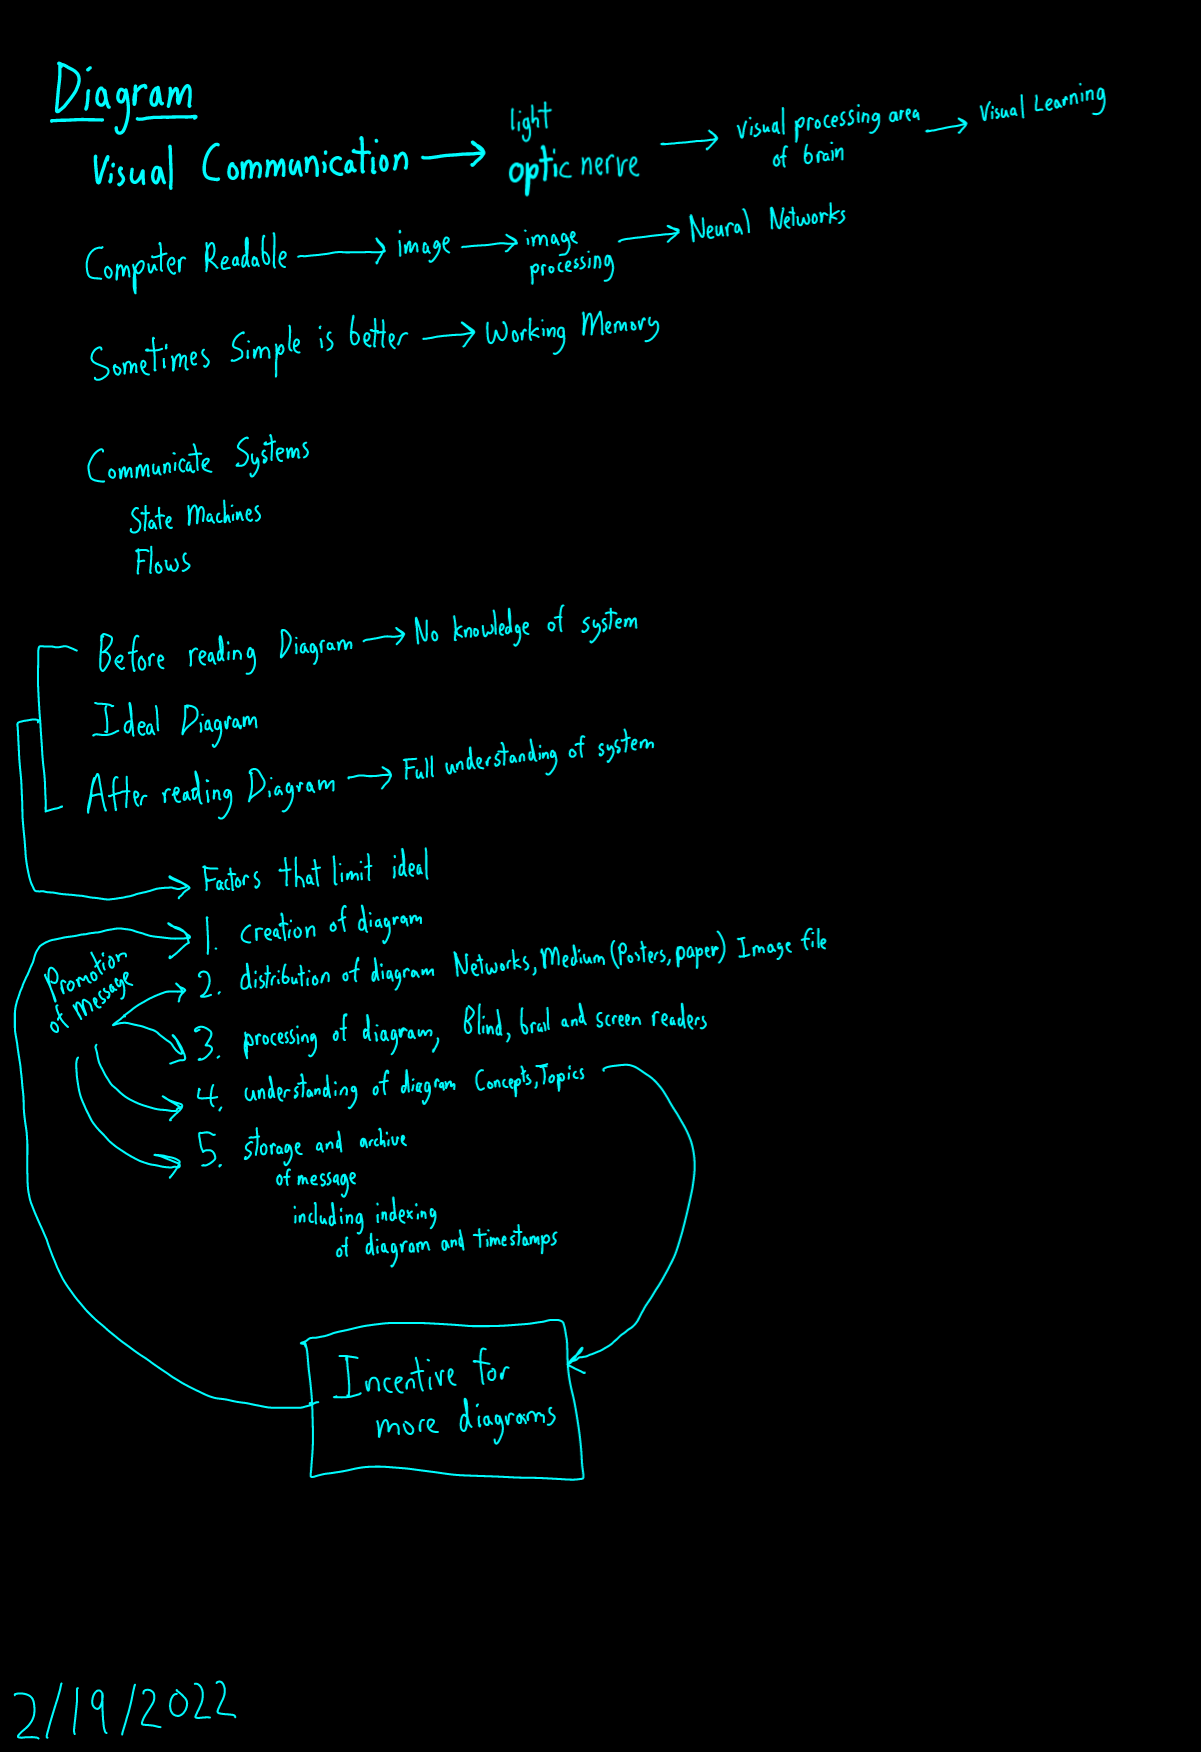 Diagram
Visual Communication → light optic nerve → visual processing area of brain → Visual Learning
Computer Readable → image → image processing → Neural Networks
Sometimes Simple is better → Working Memory
Communicate Systems
State Machines
Flows
Before reading Diagram → No knowledge of system
Ideal Diagram
After reading Diagram → Full understanding of system
Factors that limit ideal
Promotion of message
1. creation of diagram
2. distribution of diagram Networks, Medium (Posters, paper) Image file
3. processing of diagram, Blind, brail and screen readers
4. understanding of diagram Concepts, Topics
5. storage and archive
of message
including indexing
of diagram and timestamps
Incentive for
more diagrams
2/19/2022